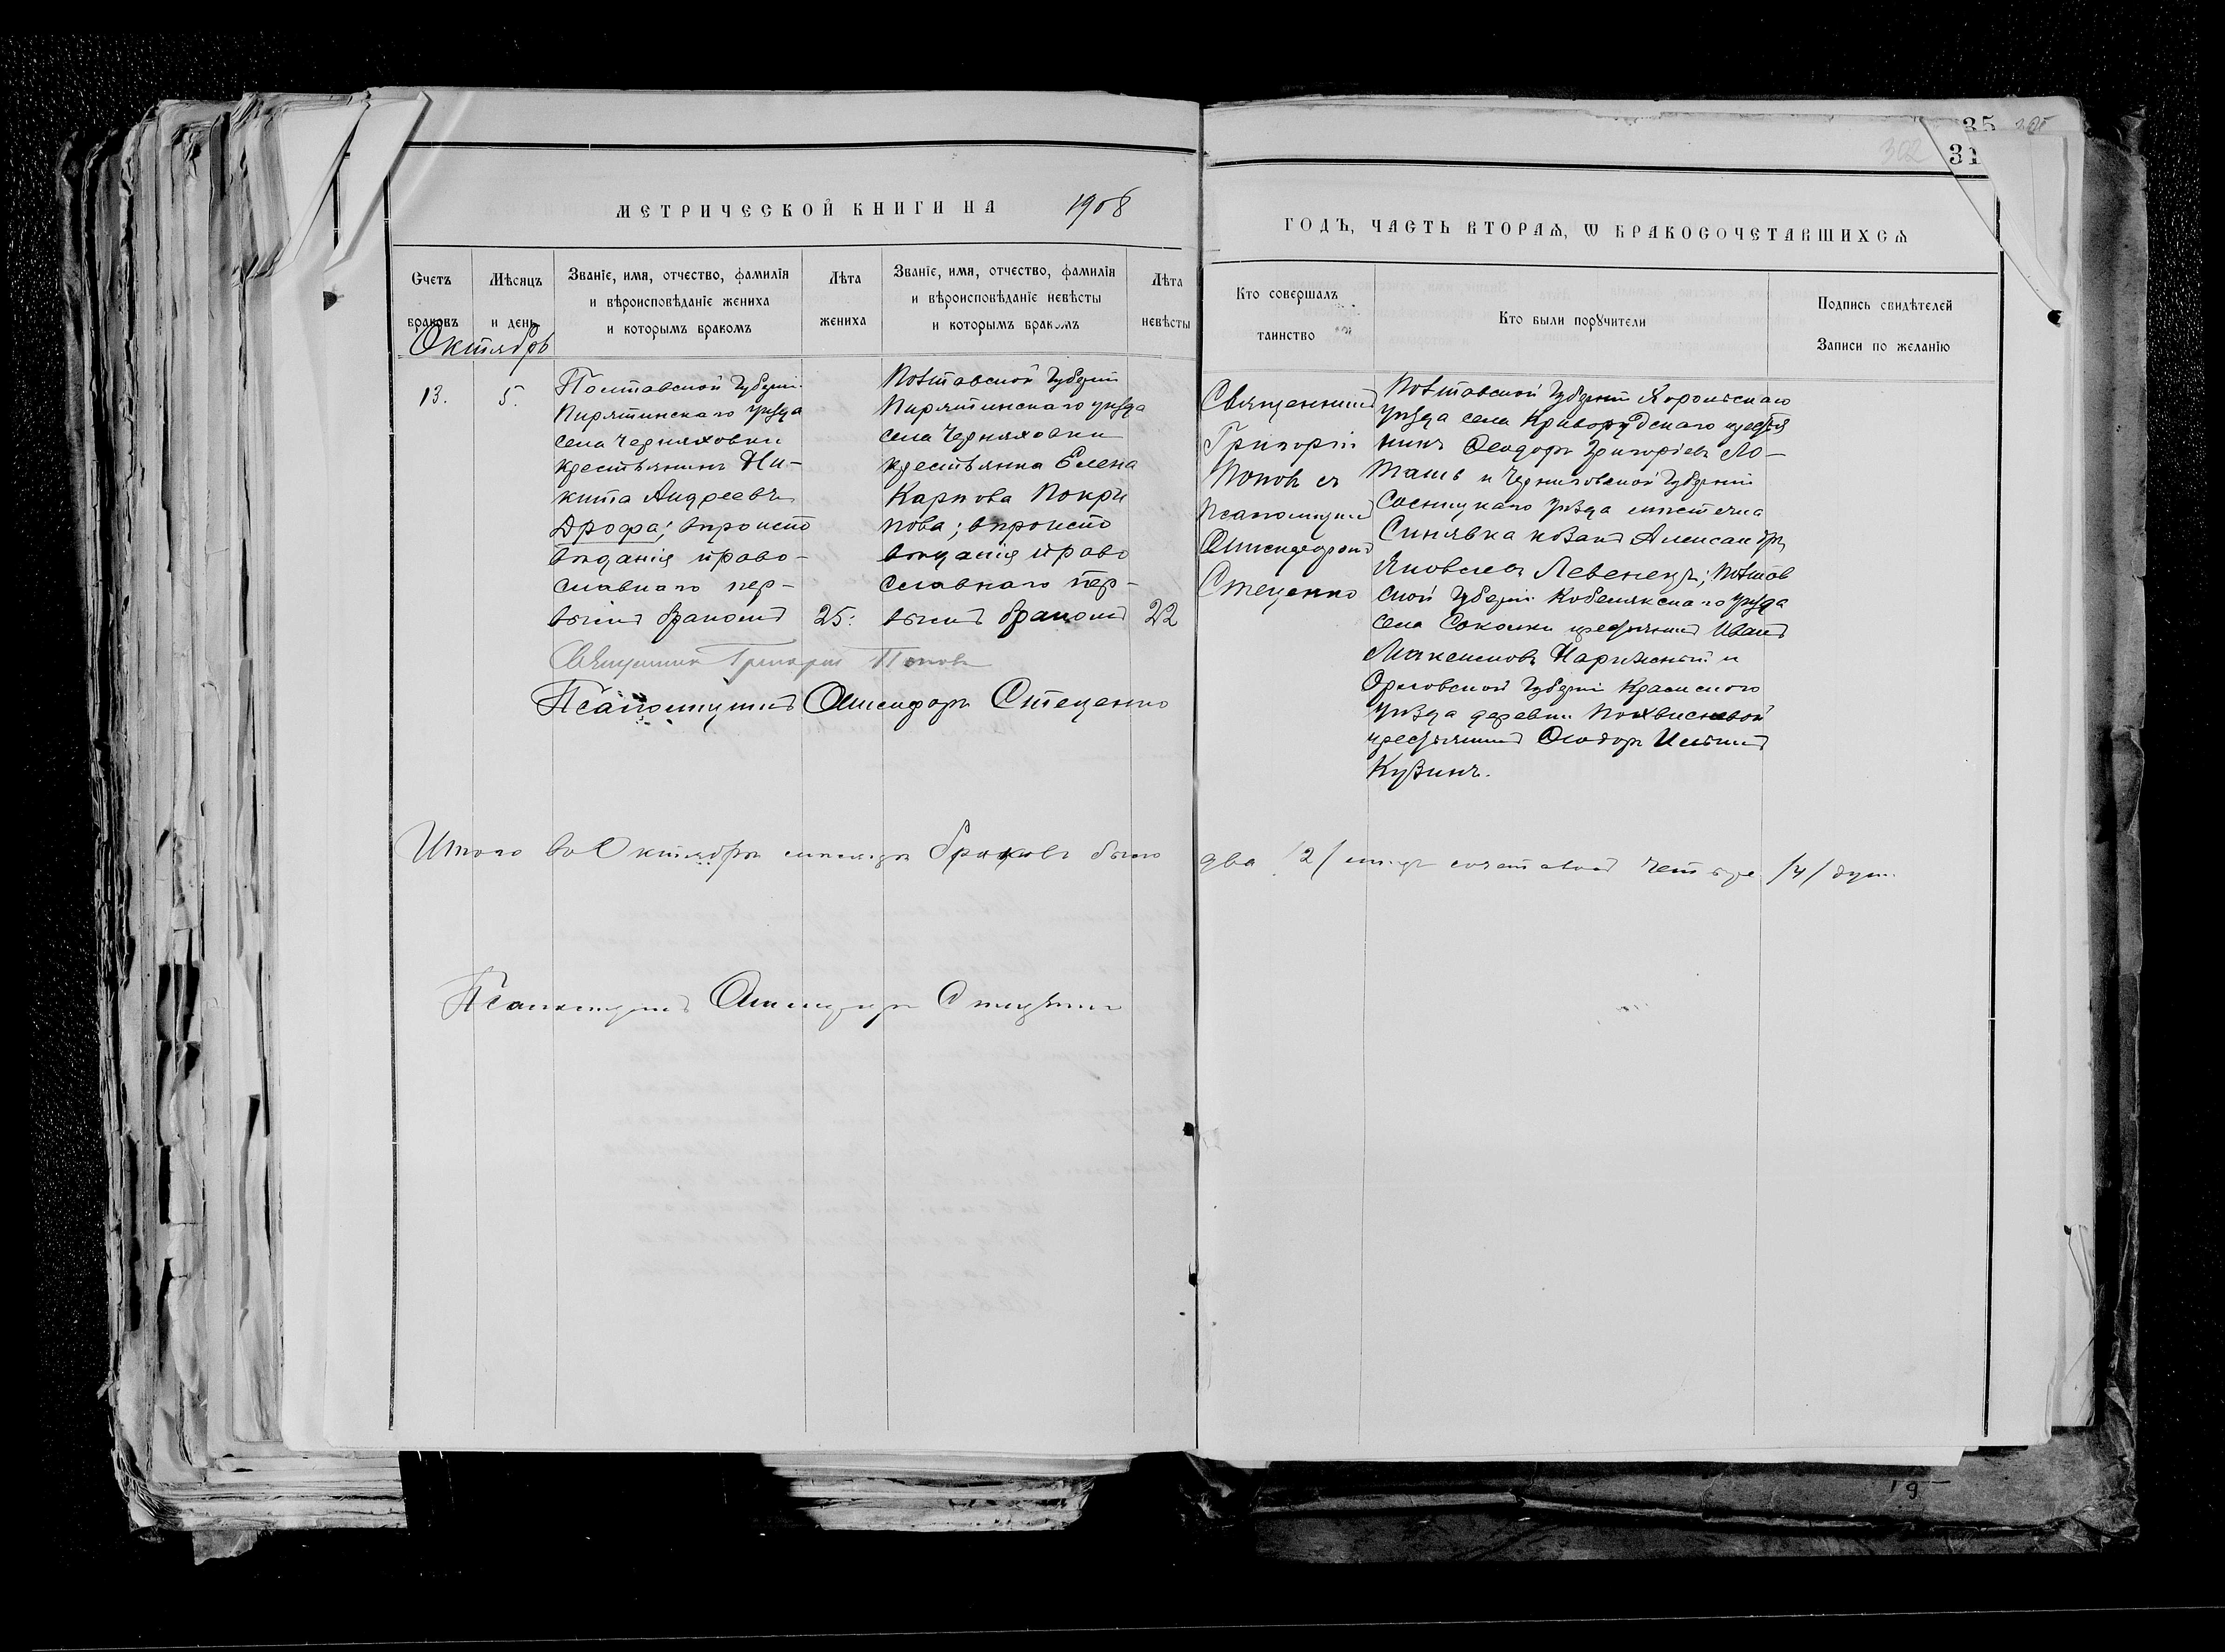 35
302 31
МЕТРИЧЕСКОЙ КНИГИ НА 1908
ГОДЪ, ЧАСТЬ ВТОРАѦ, Ѡ БРАКОСОЧЕТАВШИХСѦ
Счетъ браковъ
Мѣсяцъ и день
Званіе, имя, отчество, фамилія
и вѣроисповѣданіе жениха
и которымъ бракомъ
Лѣта жениха
Званіе, имя, отчество, фамилія
и вѣроисповѣданіе невѣсты
и которымъ бракомъ
Лѣта невѣсты
Кто совершалъ
таинство
Кто были порꙋчители
Подпись свидѣтелей
Записи по желанію
Октябрь
13.
5.
Полтавской Губерніи
Пирятинскаго уѣзда
села Черняховки
крестьянинъ Ни-
кита Андреевъ
Дрофа; вѣроиспо
вѣданія право-
славнаго пер-
вымъ бракомъ
25.
Полтавской Губерніи
Пирятинскаго уѣзда
села Черняховки
крестьянка Елена
Карпова Покри
пова; вѣроиспо
вѣданія право
славнаго пер-
вымъ бракомъ
22
Священникъ
Григорій
Поповъ съ
псаломщикомъ
Стеценко
Полтавской Губерніи Хорольскаго
уѣзда села Криворудскаго крестья
нинъ Ѳеодоръ Григорьевъ Ло-
ташъ и Черниговской Губерніи
Сосницкаго уѣзда мѣстечка
Синявка козакъ Александръ
Яковлевъ Левенецъ; Полтав
ской Губерніи Кобелякскаго уѣзда
села Соколки крестьянинъ Иванъ
Максимовъ Нарижный и
Орловской Губерніи
уѣзда деревни
крестьянинъ Ѳеодоръ Ильинъ
Кузинъ.
Священникъ Григорій Поповъ
Псаломщикъ Стеценко
Итого въ Октябрѣ мѣсяцѣ браковъ было два /2/ лицъ четыре /4/ душ.
Псаломщикъ Стеценко
19